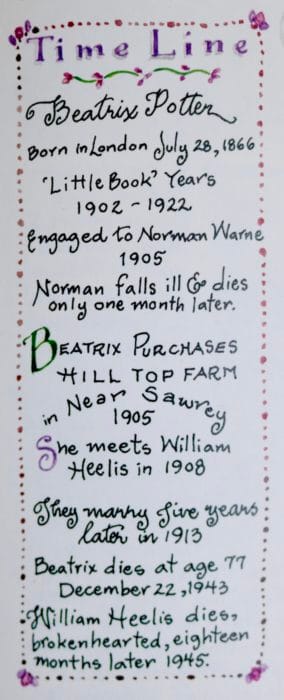 Time Line
Beatrix Potter
Born in London July 28, 1866
'Little Book' Years
1902 - 1922
Engaged to Norman Warne
1905
Norman falls ill & dies
only one month later.
BEATRIX PURCHASES
HILL TOP FARM
in Near Sawrey
1905
She meets William
Heelis in 1908
They marry five years
later in 1913
Beatrix dies at age 77
December 22, 1943
William Heelis dies,
brokenhearted, eighteen
months later 1945.